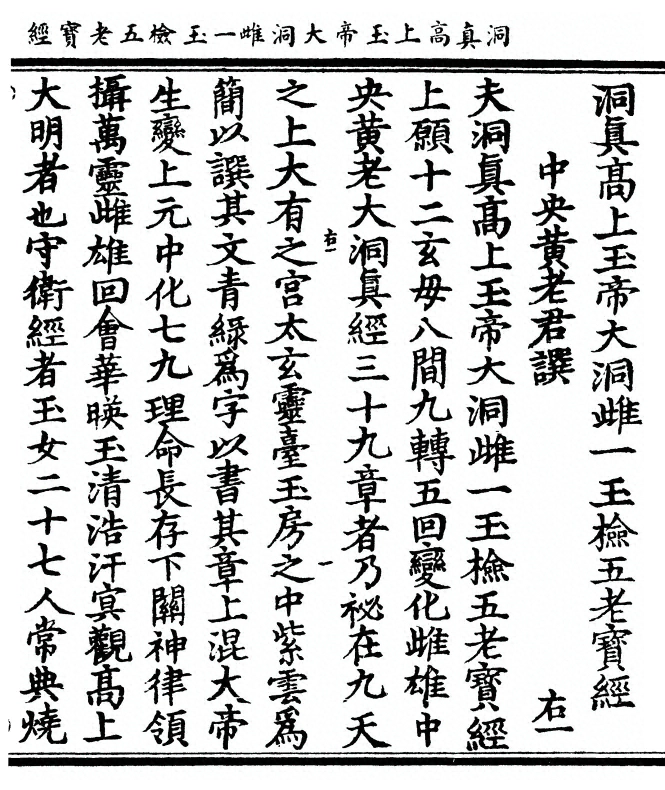 洞眞高上玉帝大洞雌一玉檢五老寶經
洞眞高上玉帝大洞雌一玉檢五老寶經
中央黃老君譔
右一
夫洞眞高上玉帝大洞雌一玉檢五老寶經
上願十二玄母八間九轉五回變化雌雄中
央黃老大洞眞經三十九章者乃祕在九天
右一
之上大有之宮太玄靈臺玉房之中紫雲爲
簡以譔其文青綠爲字以書其章上混大帝
生變上元中化七九理命長存下關神律領
攝萬靈雌雄回會華暎玉清浩汗㝠觀高上
大明者也守衛經者玉女二十七人常典燒